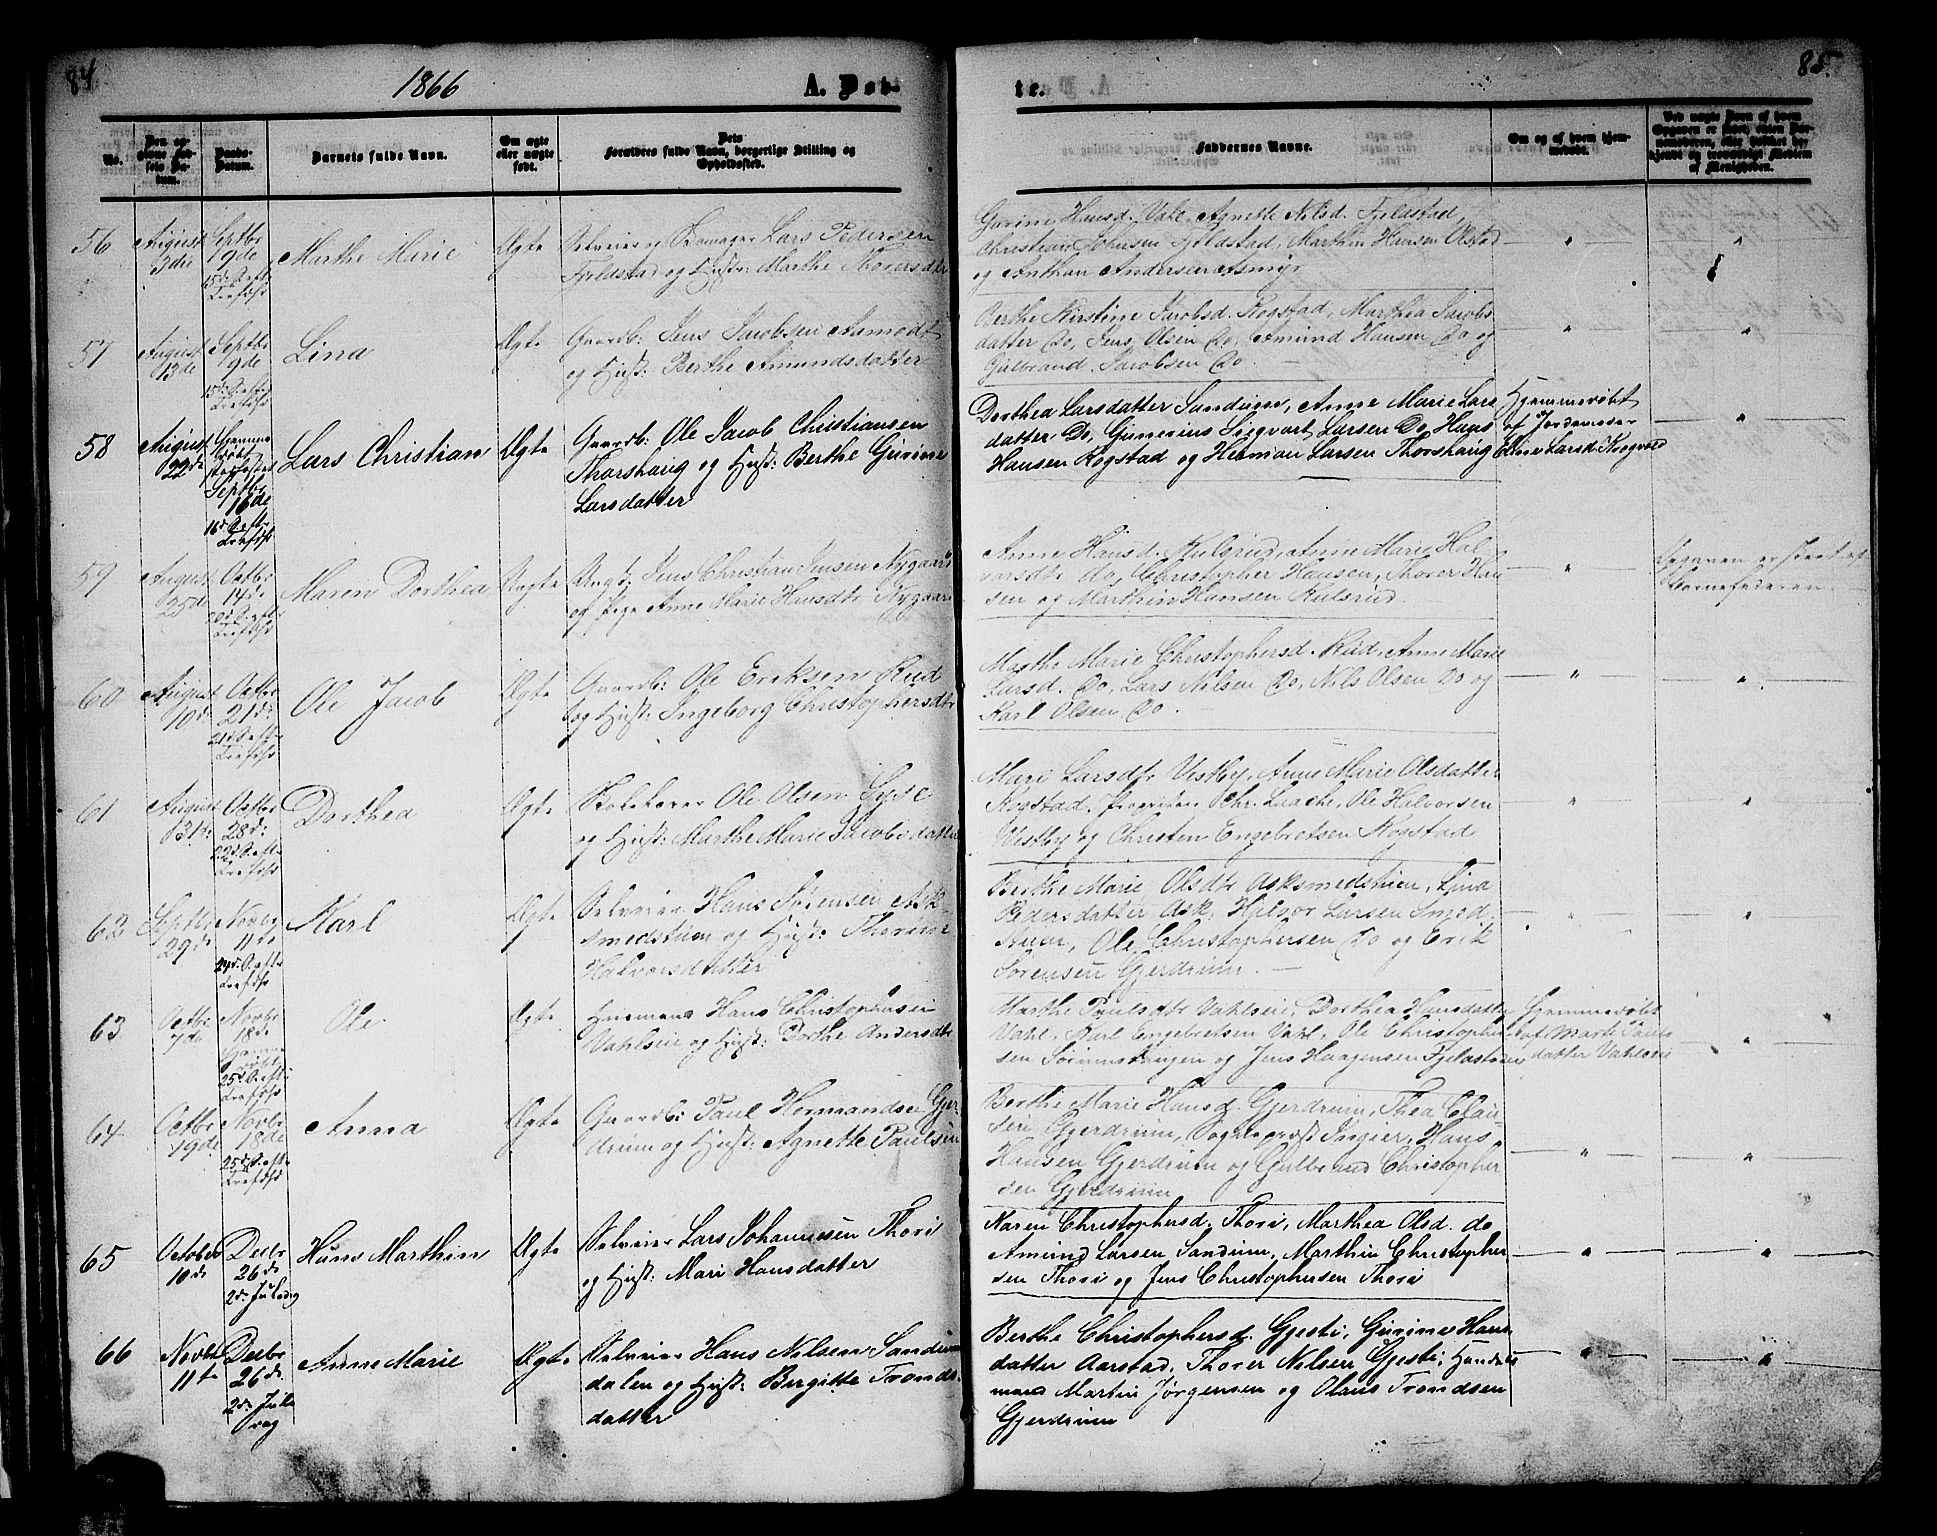 84
1866
A. Døb-
te.
85.
No.
Den op-
givne Fød-
sels Da-
tum.
Daabs-
Datum.
Barnets fulde Navn.
Om ægte
eller uægte
født.
Dets
Forældres fulde Navn, borgerlige Stilling og
Opholdssted.
Faddernes Navne.
Om og af hvem hjem-
medøbt.
Ved uægte Børn af hvem
Opgaven er skeet
af Menigheden.
56
August
3die
Septbr
9de
15d: S. eft.
Trefdhs
Marthe Marie
Ægte
Selveier og Lars Pedersen
Fjeldstad og Hust: Marthe Thoresdtr
Gurine Hansd. Vahl, Agnette Nilsd. Fjeldstad,
Christian Johnsen Fjeldstad, Marthin Hansen Olstad
og Anthon Andersen Asmyr
57
August
13de
Septbr
9de
15d: S. eft.
Trefdhs
Lina
Ægte
Gaardb: Jens Jacobsen Aamodt
og Hust: Berthe Amundsdatter
Berthe Kirstine Jacobsd. Rogstad, Marthea Jacobs
datter Do, Jens Olsen Do, Amund Hansen Do og
Gulbrand Jacobsen Do
58
August
22de
Hjemme
døbt
Septbr
16de
16d S. eft.
Trefdhs
Lars Christian
Ægte
Gaardb: Ole Jacob Christiansen
Thorshaug og Hust: Berthe Gurine
Larsdatter
Dorthea Larsdatter Sandum, Anne Marie Lars
datter Do, Gunerius Sigvart Larsen Do, Hans
Hansen Rogstad og Herman Larsen Thorshaug
Hjemmedøbt
af Jordemoder
Eline Larsd: Krogvold
59
August
25de
Octbr
14de
20d S. eft.
Trefdhs
Maren Dorthea
Uægte
Ungk: Jens Christian Jensen Nygaard
og Pige Anne Marie Hansdtr Nygaard
Anne Hansd. Kulsrud, Anne Marie Hal
varsdtr do, Christopher Hansen, Thorer Han
sen og Marthin Hansen Kulsrud.
Opgaven er skeet af
Barnefaderen
60
August
10de
Octbr
21de
21d S. eft.
Trefdhs
Ole Jacob
Ægte
Gaardb: Ole Eriksen Rud
og Hust: Ingeborg Christophersdtr
Marthe Marie Christophersd. Rud, Anne Marie
Larsd. Do, Lars Nilsen Do, Nils Olsen Do og
Karl Olsen Do.
61
August
31de
Octbr
28de
22d S. eft.
Trefdhs
Dorthea
Ægte
Skolelærer Ole Olsen
og Hust: Marthe Marie Jacobsdatter
Mari Larsdtr Vestby, Anne Marie Olsdatter
Rogstad, Chr. Laache, Ole Halvorsen
Vestby og Christen Engebretsen Rogstad
62
Septbr
29de
Novbr
11te
24d. S. eft.
Trefdhs
Karl
Ægte
Selveier Hans Sørensen Ask-
smedstuen og Hust: Thorine
Halvorsdatter
Berthe Marie Olsdtr Asksmedstuen, Lina
Pedersdatter Ask, Halvor Larsen Smed-
stuen, Ole Christophersen Do og Erik
Sørensen Gjerdrum.
63
Octbr
7de
Novbr
18de
Hjemme
døbt
25d. S. eft.
Trefdhs
Ole
Ægte
Husmand Hans Christophersen
Vahlseie og Hust: Dorthe Andersdtr
Marthe Paulsdtr Vahlseie, Dorthea Hansdatter
Vahl, Karl Engebretsen Vahl, Ole Christopher-
sen og Jens Haagensen Fjeldstad
Hjemmedøbt
af Marte Pauls
datter Vahlseie
64
Octbr
19de
Novbr
18de
25d S. eft.
Trefdhs
Anna
Ægte
Gaardb: Paul Hermandsen Gjer-
drum og Hust: Agnette Paulsen
Berthe Marie Hansd. Gjerdrum, Thea Clau-
sen Gjerdrum, Sogneprest Ingier, Hans
Hansen Gjerdrum og Gulbrand Christopher
sen Gjerdrum
65
October
10de
Decbr
26de
2d: Juledag
Hans Marthin
Ægte
Selveier Lars Johannesen Thori
og Hust: Mari Hansdatter
Karen Christophersd: Thori, Marthea Olsd. do
Amund Larsen Sandum, Marthin Christopher
sen Thori og Jens Christophersen Thori
66
Novbr
11te
Decbr
26de
2d: Jule
dag
Anne Marie
Ægte
Selveier Hans Nilsen Sandum
dalen og Hust: Birgitte Tronds-
datter
Berthe Christophersd. Gjesti, Gurine Hans
datter Aarstad, Thorer Nilsen Gjesti, Handels
mand Martin Jørgensen og Olaus Trondsen
Gjerdrum